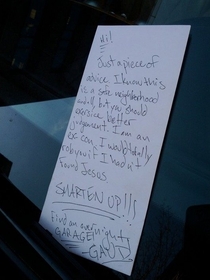 Hi!
Just a piece of
advice I know this
is a safe neighborhood
and all, but you should
exercise better
judgement. I am an
ex con, I would totally
rob you if I hadn't
found Jesus
SMARTEN UP!!!
Find an overnight
GARAGE!